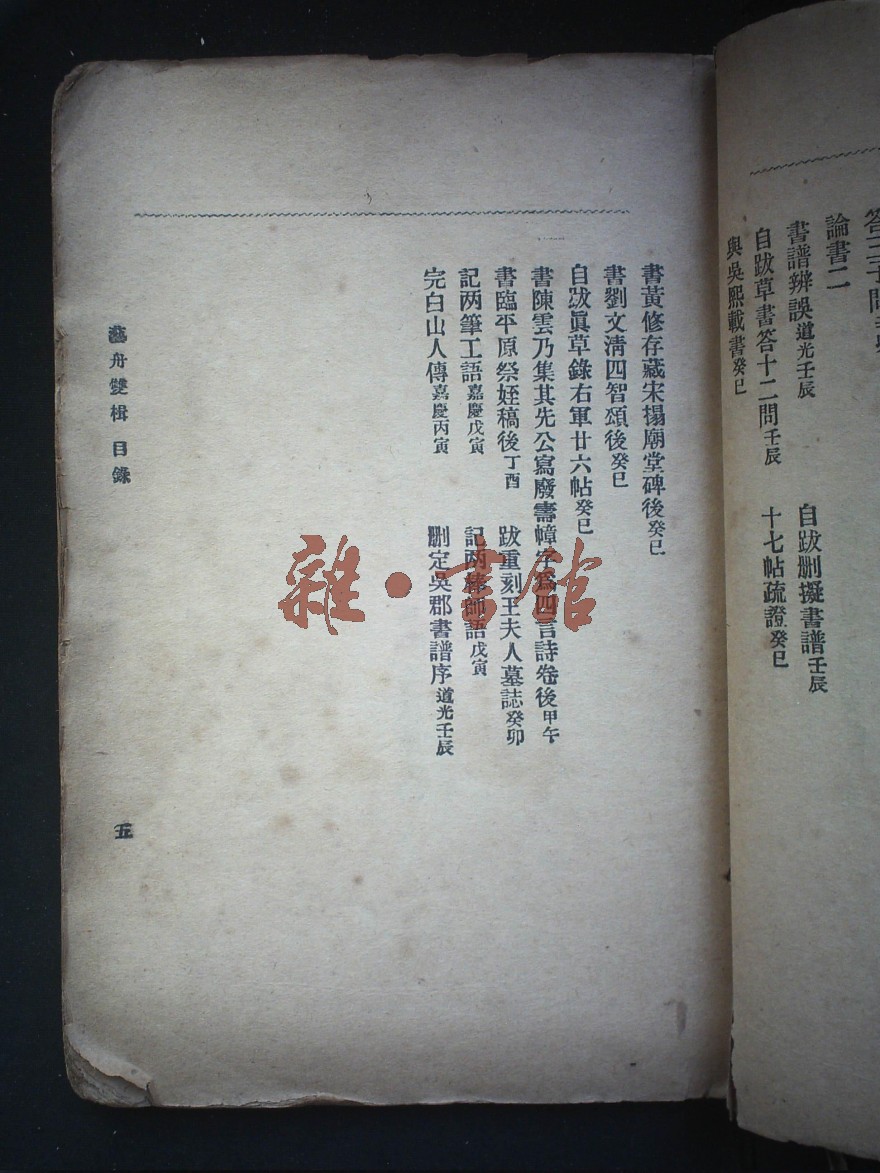 論書二
書譜辨誤道光壬辰
自跋删擬書譜壬辰
自跋草書答十二問壬辰
十七帖疏證癸巳
與吳熙載書癸巳
書黃修存藏宋搨廟堂碑後癸巳
書劉文清四智頌後癸巳
自跋眞草錄右軍廿六帖癸巳
書陳雲乃集其先公寫廢壽幛字爲四言詩卷後甲午
書臨平原祭姪稿後丁酉
跋重刻王夫人墓誌癸卯
記两筆工語嘉慶戊寅
記两棒師語戊寅
完白山人傳嘉慶丙寅
删定吳郡書譜序道光壬辰
藝舟雙楫 目錄
五
雜·書館